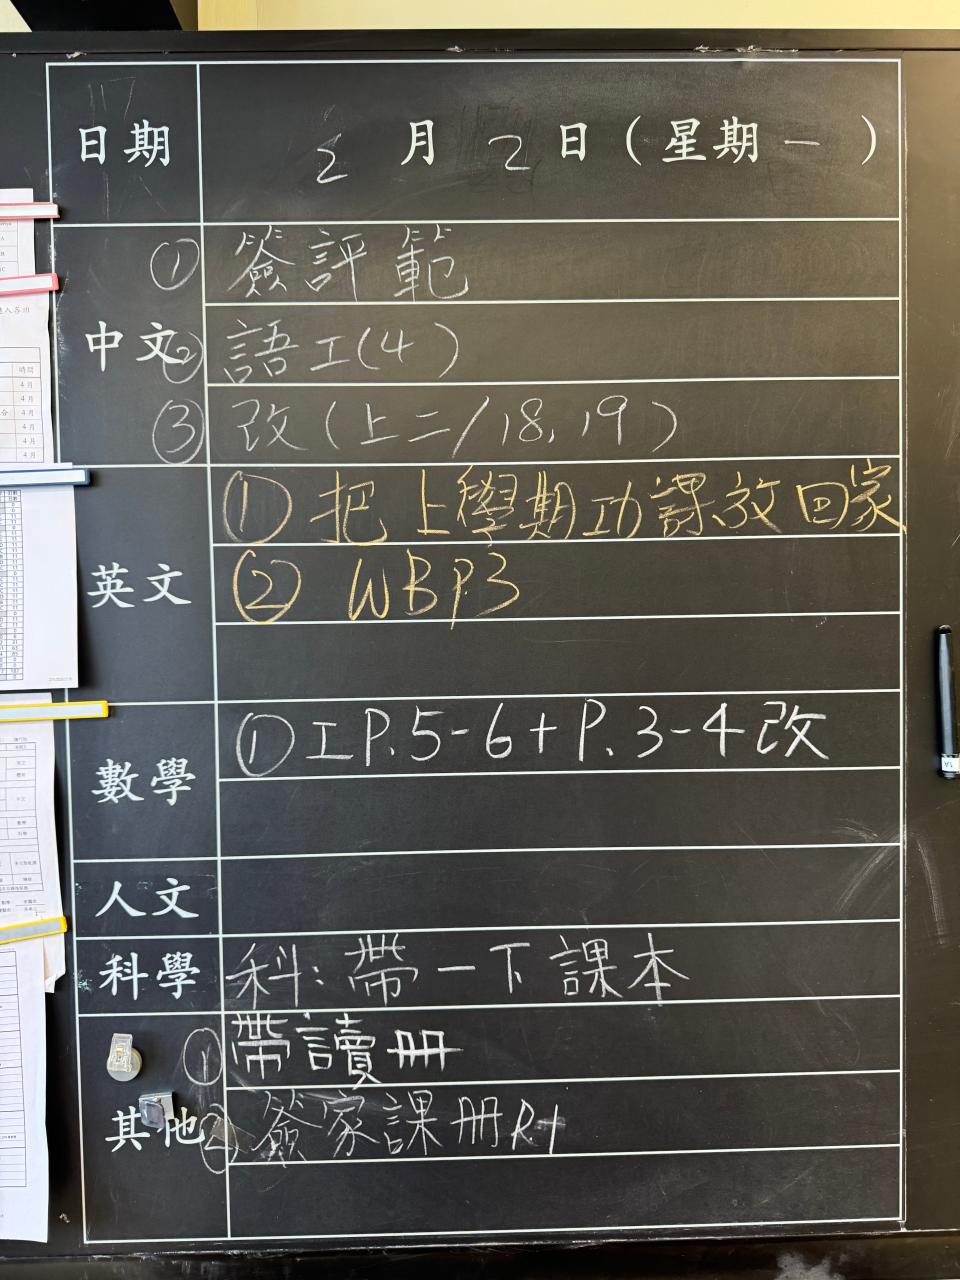 日期 2 月 2 日 ( 星期 一 )
中文
① 簽評範
② 語工(4)
③ 改(上二/18, 19)
英文
① 把上學期功課放回家
② WB P.3
數學
① 工 P.5-6 + P.3-4 改
人文
科學
科: 帶一下課本
其他
① 帶讀冊
② 簽家課冊 R1